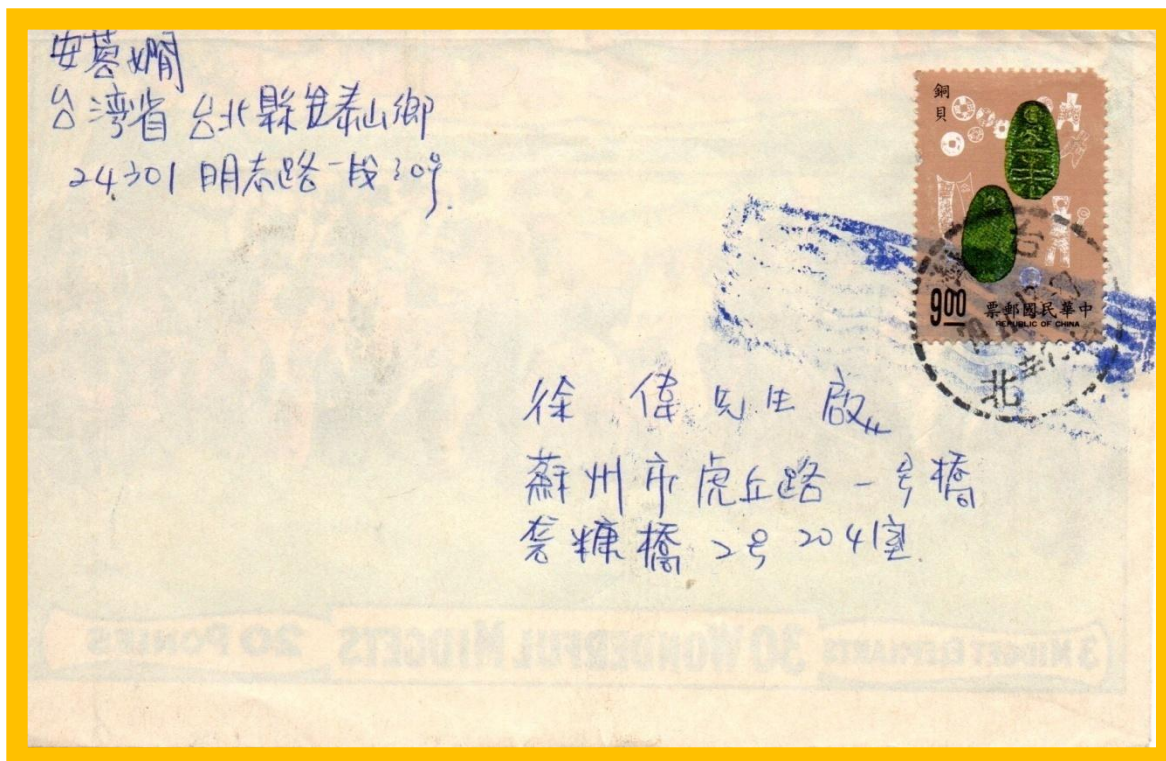 安蓉嫻
台湾省 台北縣 泰山鄉
24301 明志路一段30号
銅貝
9.00
中華民國郵票
REPUBLIC OF CHINA
台
北
徐 偉 先生 啟
蘇州市虎丘路一号橋
糠橋 2号 204室
3 MIDGET ELEPHANTS 30 WONDERFUL MIDGETS 20 PONIES